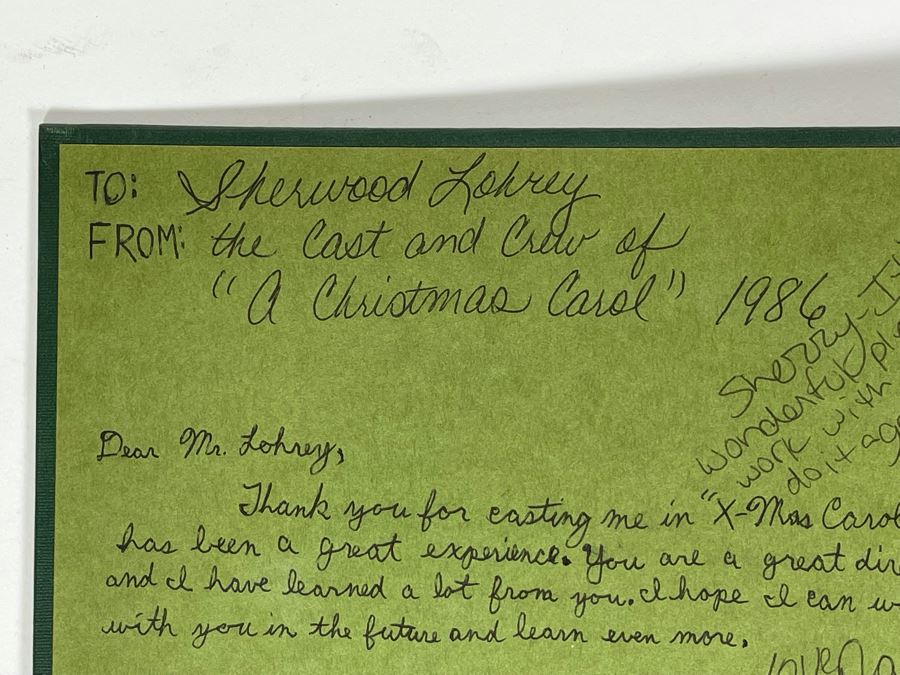 TO: Sherwood Lohrey
FROM: the Cast and Crew of
"A Christmas Carol" 1986
Sherry -
wonderful
work with
do it
Dear Mr. Lohrey,
Thank you for casting me in "X-Mas Carol
has been a great experience. You are a great
and I have learned a lot from you. I hope I can
with you in the future and learn even more.
love